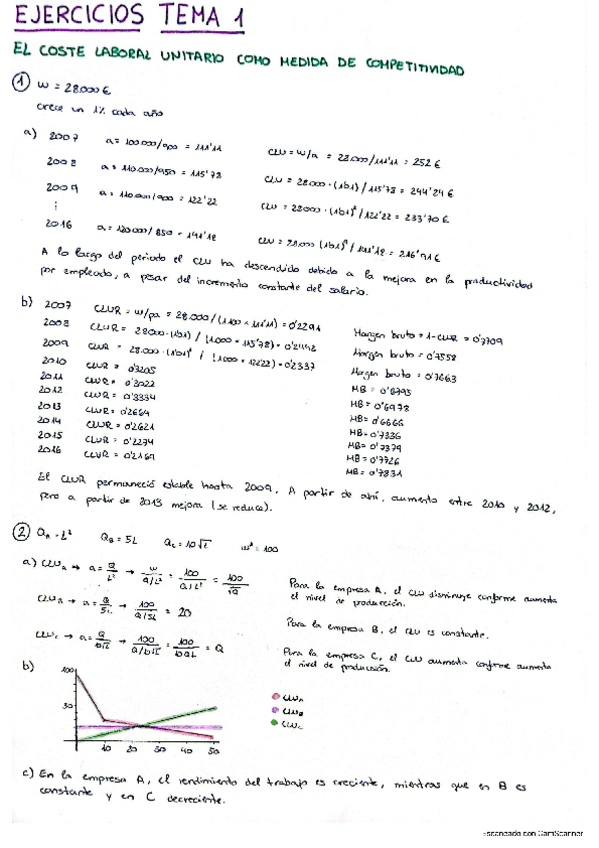 EJERCICIOS TEMA 1
EL COSTE LABORAL UNITARIO COMO MEDIDA DE COMPETITIVIDAD
① W = 28.000 €
crece un 1% cada año
a) 2007 a = 100.000/900 = 111'11 CLU = W/a = 28.000/111'11 = 252 €
2008 a = 110.000/950 = 115'78 CLU = 28.000 · (1'01) / 115'78 = 244'24 €
2009 a = 110.000/900 = 122'22 CLU = 28000 · (1'01)² / 122'22 = 233'70 €
⋮
2016 a = 120.000/850 = 141'18 CLU = 28.000 (1'01)⁹ / 141'18 = 216'91 €
A lo largo del periodo el CLU ha descendido debido a la mejora en la productividad
por empleado, a pesar del incremento constante del salario.
b) 2007 CLUR = W/pa = 28.000 / (1.100 × 111'11) = 0'2291 Margen bruto = 1 - CLUR = 0'7709
2008 CLUR = 28000 · (1'01) / (1000 × 115'78) = 0'2442 Margen bruto = 0'7558
2009 CLUR = 28.000 · (1'01)² / (1000 × 122'22) = 0'2337 Margen bruto = 0'7663
2010 CLUR = 0'3205 MB = 0'6795
2011 CLUR = 0'3022 MB = 0'6978
2012 CLUR = 0'3334 MB = 0'6666
2013 CLUR = 0'2664 MB = 0'7336
2014 CLUR = 0'2621 MB = 0'7379
2015 CLUR = 0'2274 MB = 0'7726
2016 CLUR = 0'2169 MB = 0'7831
El CLUR permaneció estable hasta 2009. A partir de ahí, aumenta entre 2010 y 2012,
pero a partir de 2013 mejora (se reduce).
② Q_A = L² Q_B = 5L Q_C = 10√L W = 100
a) CLU_A → a = Q/L² → W / Q/L² = 100 / Q/L² = 100/√Q Para la empresa A, el CLU disminuye conforme aumenta
el nivel de producción.
CLU_B → a = Q/5L → 100 / Q/5L = 20 Para la empresa B, el CLU es constante.
CLU_C → a = Q/10√L → 100 / Q/10√L = 100/10QL = Q Para la empresa C, el CLU aumenta conforme aumenta
el nivel de producción.
b) 100
50
30
10 20 30 40 50
CLU_A
CLU_B
CLU_C
c) En la empresa A, el rendimiento del trabajo es creciente, mientras que en B es
constante y en C decreciente.
Escaneado con CamScanner